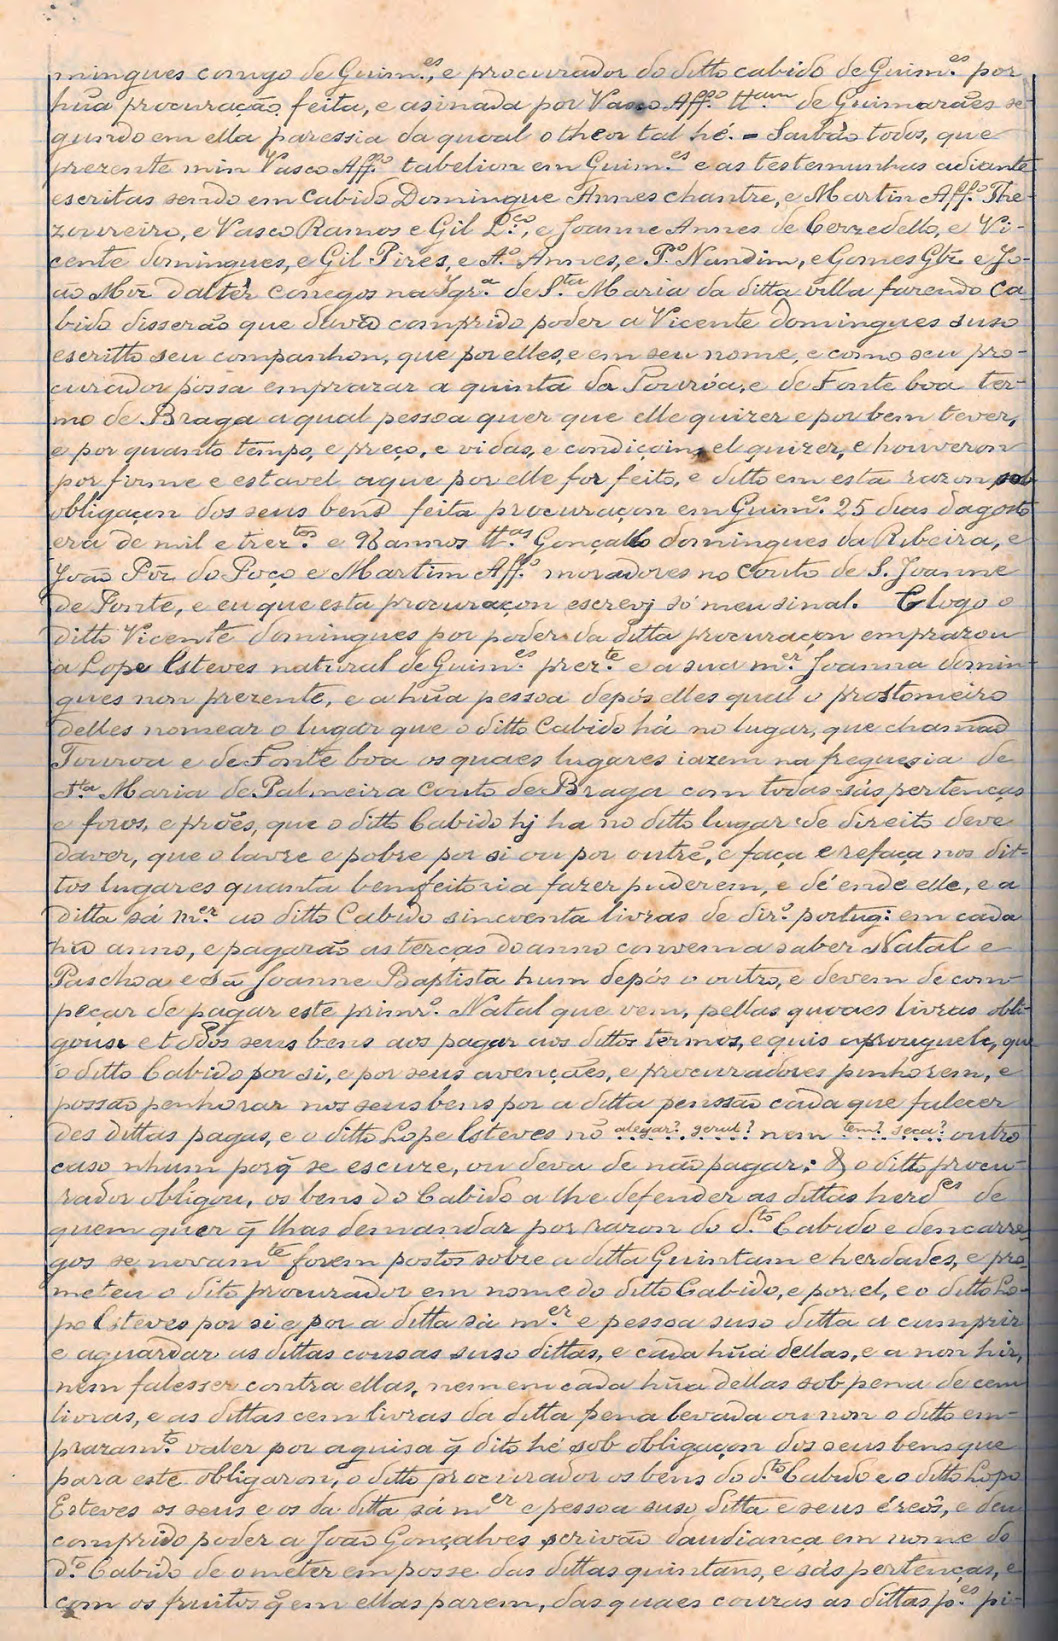 mingues conigo de Guim.es, e procurador do ditto cabido de Guim.es por
hũa procuração feita, e asinada por Vasco Aff.º tt.am de Guimarães se-
gundo em ella paressia da quoal o theor tal hé. = Saibão todos, que
prezente min Vasco Aff.º tabelion em Guim.es e as testemunhas adiante
escritas sendo em Cabido Domingue Annes chantre, e Martin Aff.º The-
zoureiro, e Vasco Ramos e Gil L.ço, e Joanne Annes de Cerzedello, e Vi-
cente domingues, e Gil Pires, e A.º Annes, e P.º Nandim, e Gomes Glz e Jo-
ão Miz Dalter conegos na Igr.a de S.ta Maria da ditta villa fazendo Ca
bido disserão que davão comprido poder a Vicente domingues suso
escritto seu companhon, que por elles, e em seu nome, e como seu pro-
curador possa emprazar a quinta da Touróa, e de Fonte boa ter-
mo de Braga a qual pessoa quer que elle quizer e por bem tever,
e por quanto tempo, e preço, e vidas, e condiçoins, el quizer, e houveron
por firme e estavel aque por elle for feito, e ditto em esta razon sob
obligaçon dos seus bens feita procuraçon em Guim.es 25 dias dagosto
era de mil e trez.tos e 98 annos tt.as Gonçallo domingues da Ribeira, e
João Piz do Poço e Martim Aff.º moradores no Couto de S. Joanne
de Ponte, e eu que esta procuraçon escrevj só meu sinal. E logo o
ditto Vicente domingues por poder da ditta procuraçon emprazou
a Lope Esteves natural de Guim.es prez.te e a sua m.er Joanna domin-
gues non prezente, e a hũa pessoa depós elles qual o prostomeiro
delles nomear o lugar que o ditto Cabido há no lugar, que chamão
Touroa e de Fonte boa os quaes lugares iazem na freguesia de
S.ta Maria de Palmeira Couto de Braga com todas sás pertenças
e foros, e prões, que o ditto Cabido hj ha no ditto lugar de direito deve
daver, que o lavre e pobre por si ou por outré, e faça e refaça nos dit-
tos lugares quanta bemfeitoria fazer puderem, e dé ende elle, e a
ditta sá m.er ao ditto Cabido sincoenta livras de dir.º portug: em cada
hũ anno, e pagarão as terças do anno convem a saber Natal e
Paschoa e Sã Joanne Baptista hum depós o outro, e devem de com-
peçar de pagar este primr.º Natal que vem, pellas quoaes livras obli-
gouse e todos seus bens aos pagar aos dittos termos, e quis aprouguele, que
o ditto Cabido por si, e por seus avenções, e procuradores penhorem, e
possão penhorar nos seus bens por a ditta penssão cada que falecer
des dittas pagas, e o ditto Lope Esteves nõ alegar? geral? nem tem? seca? outro
caso nhum porq̃ se escuze, ou deva de não pagar; & o ditto procu-
rador obligou, os bens do Cabido a lhe defender as dittas herd.es de
quem quer q̃ lhas demandar por razon do d.to Cabido e dencarre
gos se novam.te forem postos sobre a ditta Guintam e herdades, e pro-
meteu o dito procurador em nome do ditto Cabido, e por el, e o ditto Lo-
po Esteves por si e por a ditta sá m.er e pessoa suso ditta a cumprir
e aguardar as dittas cousas suso dittas, e cada hũa dellas, e a non hir,
nem falesser contra ellas, nem em cada hũa dellas sob pena de cem
livras, e as dittas cem livras da ditta pena levada ou non o ditto em-
prazam.to valer por aguisa q̃ dito hé sob obligaçon dos seus bens que
para esto obligaron, o ditto procurador os bens do d.to Cabido e o ditto Lopo
Esteves os seus e os da ditta sá m.er e pessoa suso ditta e seus éreõs, e deu
comprido poder a João Gonçalves scrivão daudiança em nome do
d.º Cabido de o meter em posse das dittas quintans, e sás pertenças, e
com os fruitos q̃ em ellas parem, das quaes couzas as dittas p.es pi-